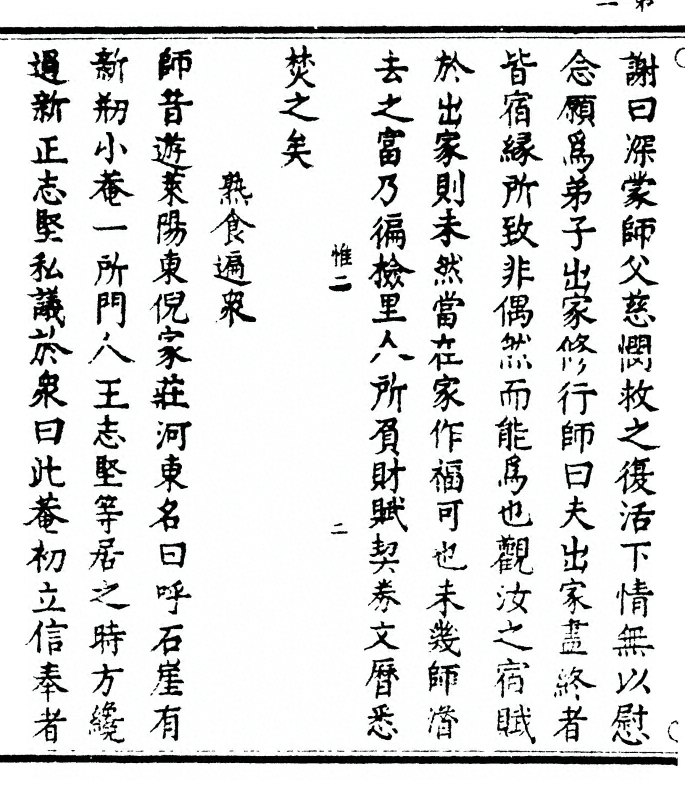 謝曰深蒙師父慈憫救之復活下情無以慰
念願為弟子出家修行師曰夫出家盡終者
皆宿緣所致非偶然而能為也觀汝之宿賦
於出家則未然當在家作福可也未幾師潛
去之富乃徧檢里人所負財賦契券文曆悉
惟二
二
焚之矣
熟食遍衆
師昔遊萊陽東倪家莊河東名曰呼石崖有
新剏小菴一所門人王志堅等居之時方纔
過新正志堅私議於衆曰此菴初立信奉者